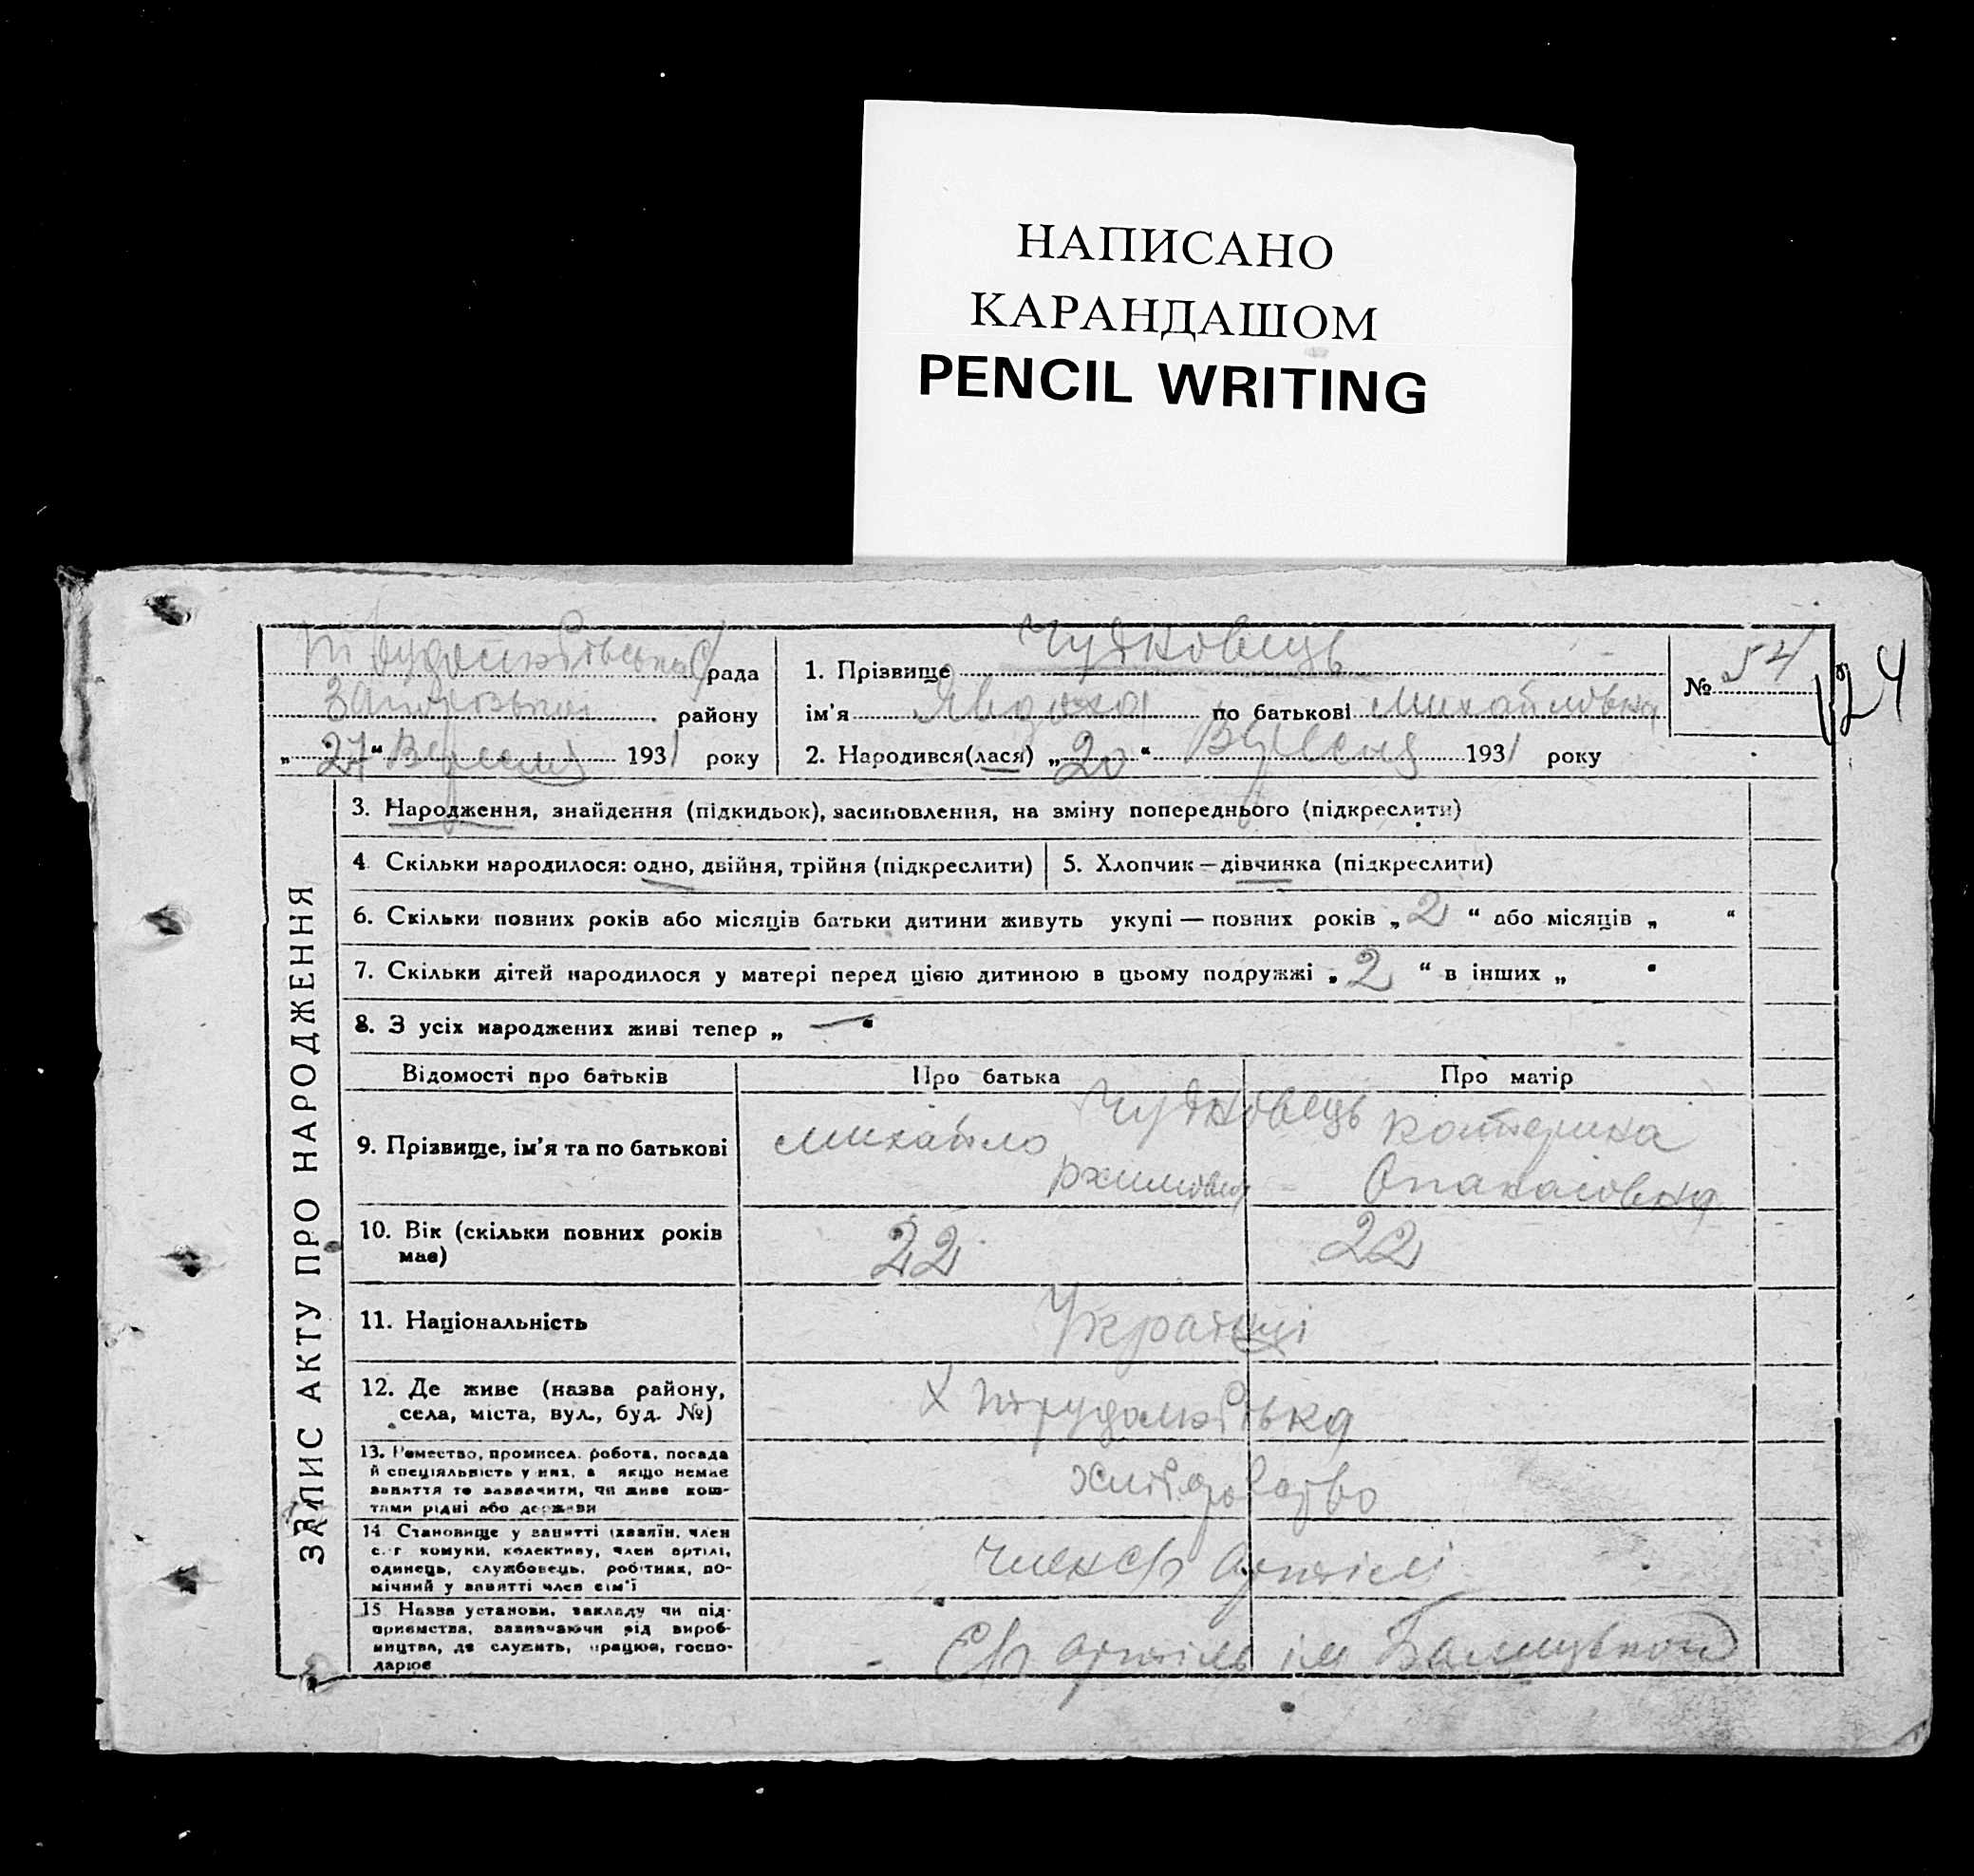 НАПИСАНО
КАРАНДАШОМ
PENCIL WRITING
рада
1. Прізвище Чудновець
№ 54
24
району
ім'я Явдоха по батькові Михайловна
„27“ Вересня 1931 року
2. Народився(лася) „20“ Вересня 1931 року
ЗАПИС АКТУ ПРО НАРОДЖЕННЯ
3. Народження, знайдення (підкидьок), засиновлення, на зміну попереднього (підкреслити)
4 Скільки народилося: одно, двійня, трійня (підкреслити)
5. Хлопчик — дівчинка (підкреслити)
6. Скільки повних років або місяців батьки дитини живуть укупі — повних років „2“ або місяців „ “
7. Скільки дітей народилося у матері перед цією дитиною в цьому подружжі „2“ в інших „ “
8. З усіх народжених живі тепер „ — “
Відомості про батьків
Про батька
Про матір
9. Прізвище, ім'я та по батькові
Чудновець
Михайло
Катерина
Опанасовна
10. Вік (скільки повних років
має)
22
22
11. Національність
Українці
12. Де живе (назва району,
села, міста, вул., буд. №)
Х
13. Ремество, промисел. робота, посада
й спеціяльність у них, а якщо немає
заняття то зазначити, чи живе кош-
тами рідні або держави
хліборобство
14 Становище у занятті (хазяїн, член
с.-г комуни, колективу, член артілі,
одинець, службовець, робітник, по-
мічний у занятті член сім'ї
член с/г артілі
15 Назва установи, закладу чи під-
приємства, зазначаючи рід вироб-
ництва, де служить, працює, госпо-
дарює
С/г артіль ім